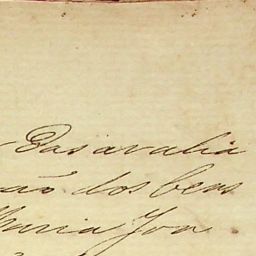 Das avalia
são dos bens
Maria Jon